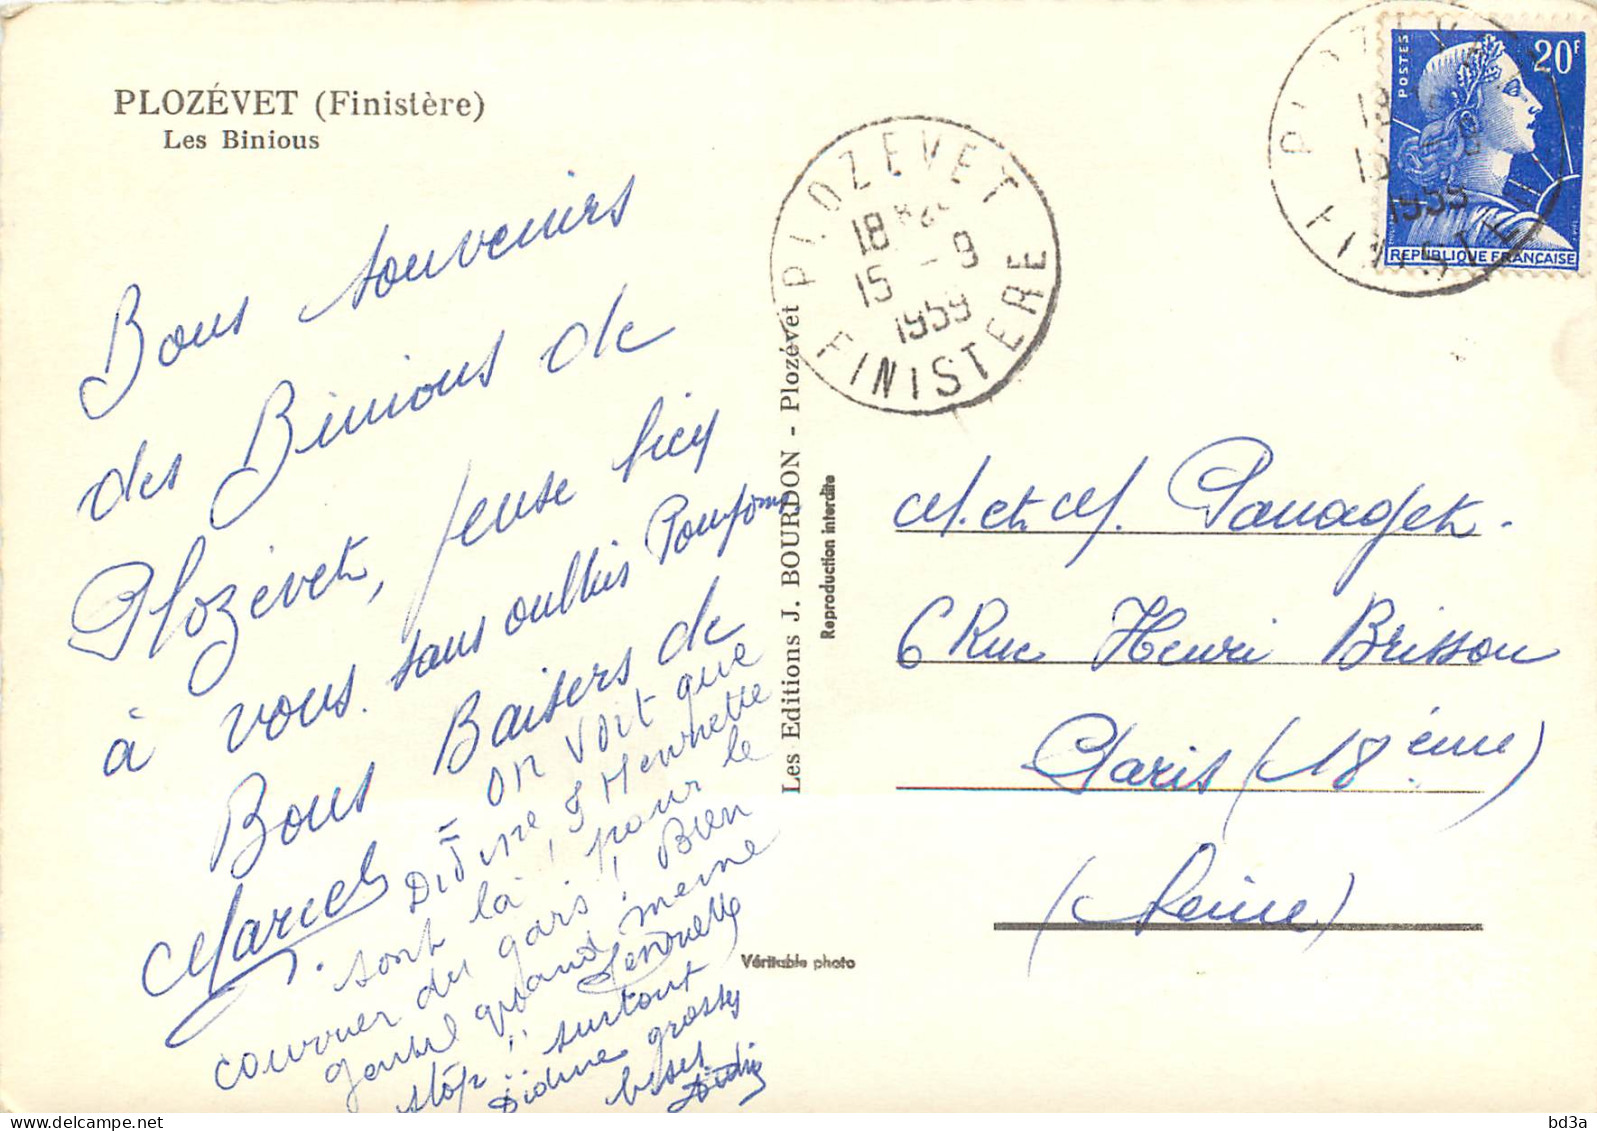 PLOZÉVET (Finistère)
Les Binious
Bons souvenirs
des Binious de
Plozévet, pense bien
à vous. sans oublier
Bons Baisers de
Marcel
= on voit que
Didine, & Henriette
sont là, pour le
courrier des gars! Bien
gentil quand même
stop!! surtout
Didine grosses
bises
Didi
Les Editions J. BOURDON - Plozévet
Reproduction interdite
Véritable photo
PLOZEVET
18 H
15 - 9
1959
FINISTERE
PLOZEVET
18
15 - 9
1959
FINISTERE
POSTES
20F
REPUBLIQUE FRANÇAISE
M. et M.
6 Rue Henri Brisson
Paris (18ème)
(Seine)
bd3a